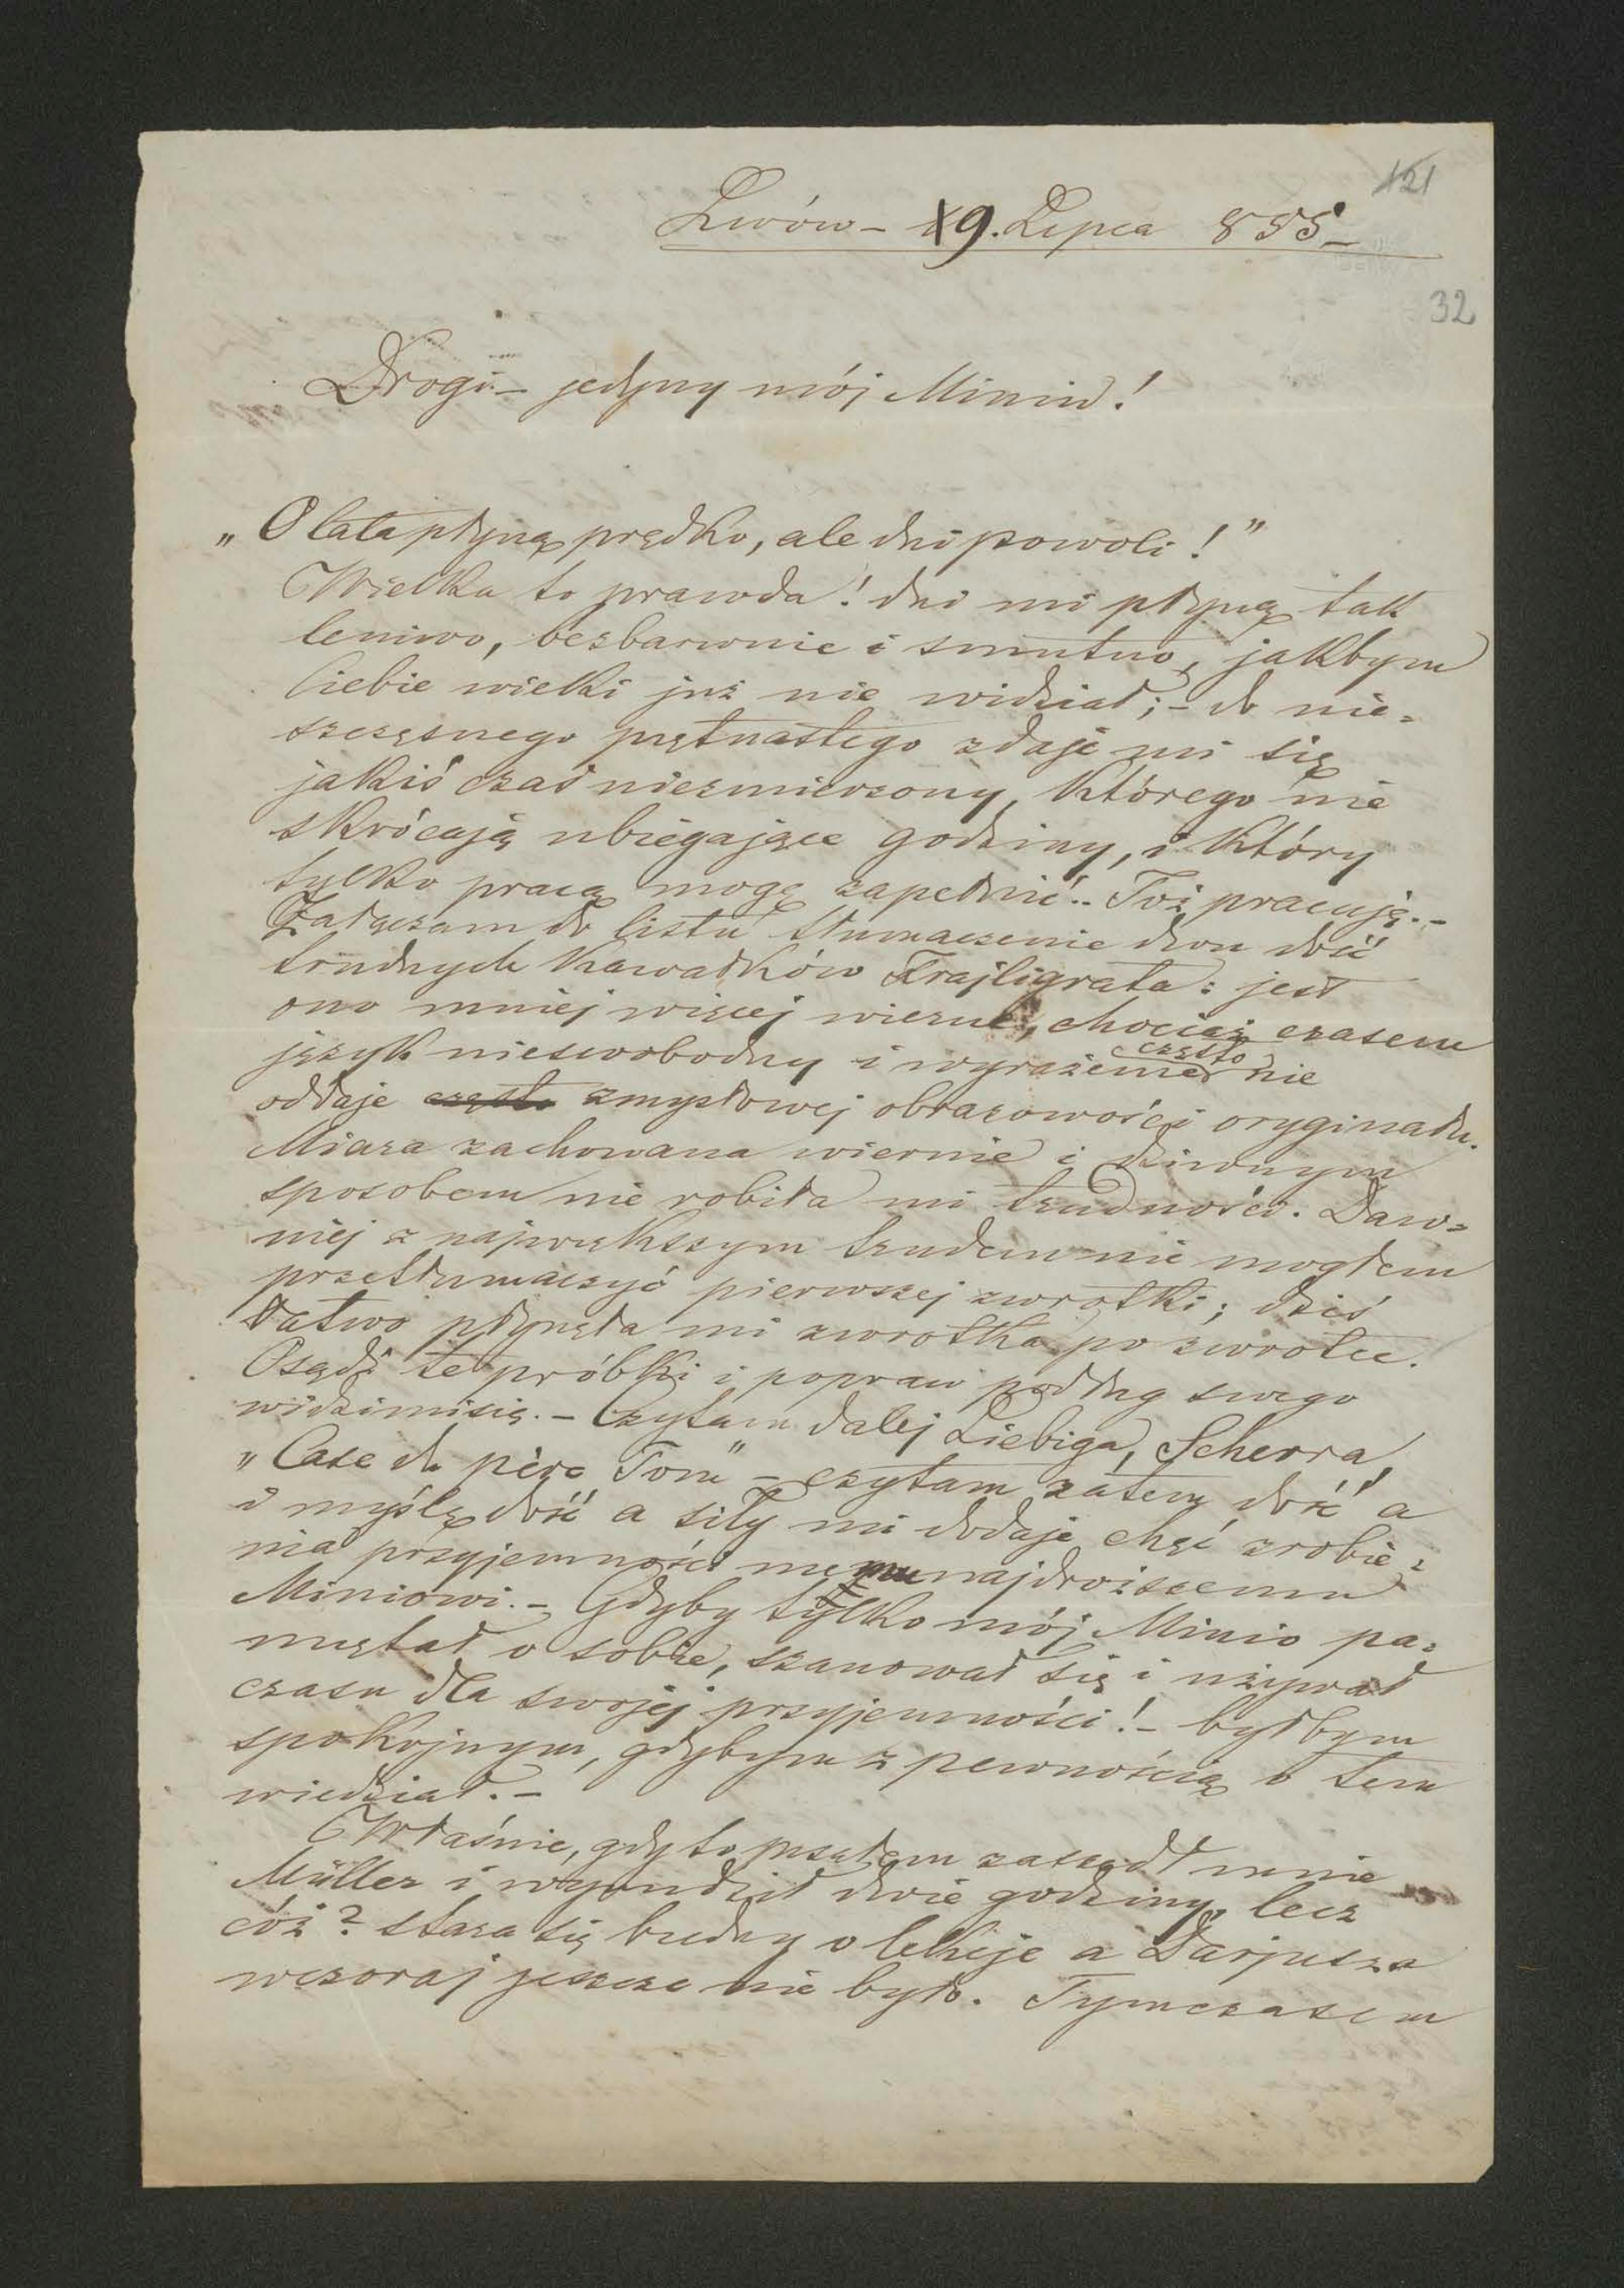 121
Lwów – 19. Lipca 855 –
32
Drogi – jedyny mój Minio!
„O lata płyną prędko, ale dni powoli!”
Wielka to prawda! dni mi płyną tak
leniwo, bezbarwnie i smutno, jakbym
Ciebie wieki już nie widział; – do nie=
szczęsnego piętnastego zdaje mi się
jakiś czas niezmierzony, którego nie
skrócają ubiegające godziny, i który
tylko pracą mogę zapełnić.. Toż pracuję. –
Załączam do listu tłumaczenie dwu dość
trudnych kawałków Frajligrata: jest
ono mniej więcej wierne, chociaż czasem
język nieswobodny i wyrażenie często nie
oddaje często zmysłowej obrazowości oryginału.
Miara zachowana wiernie i dziwnym
sposobem nie robiła mi trudności. Daw=
niej z największym trudem nie mogłem
przetłumaczyć pierwszej zwrotki; dziś
łatwo płynęła mi zwrotka po zwrotce.
Osądź te próbki i popraw podług swego
widzimisię. – Czytam dalej Liebiga, Scherra,
„Case du père Tom” – czytam zatem dość a
i myślę dość a siły mi dodaje chęć zrobie=
nia przyjemności memu najdroższemu
Miniowi. – Gdyby tylko mój Minio pa=
miętał o sobie, szanował się i używał
czasu dla swojej przyjemności! – byłbym
spokojnym, gdybym z pewnością o tem
wiedział. –
Właśnie, gdy to pisałem zaszedł mnie
Müller i wynudził dwie godziny, lecz
cóż? stara się biedny o lekcje a Darjusza
wczoraj jeszcze nie było. Tymczasem